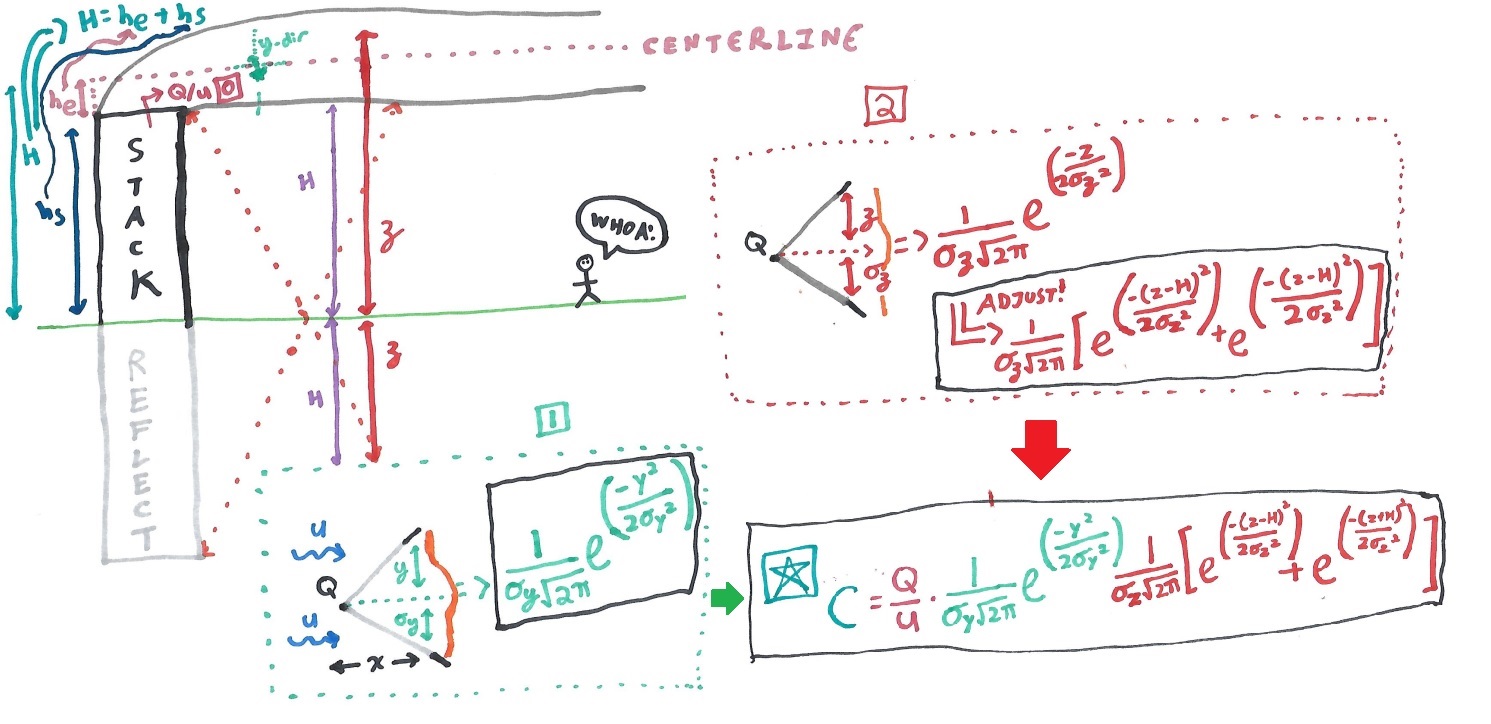 H = he + hs
y-dir
CENTERLINE
he
Q/u 0
H
hs
STACK
H
z
WHOA!
REFLECT
H
z
2
Q
z
σz
=> 1/(σz√2π) e^(-z/2σz²)
ADJUST!
1/(σz√2π) [e^(-(z-H)²/2σz²) + e^(-(z-H)²/2σz²)]
1
u
Q
u
y
σy
x
=> 1/(σy√2π) e^(-y²/2σy²)
C = Q/u · 1/(σy√2π) e^(-y²/2σy²) 1/(σz√2π) [e^(-(z-H)²/2σz²) + e^(-(z+H)²/2σz²)]